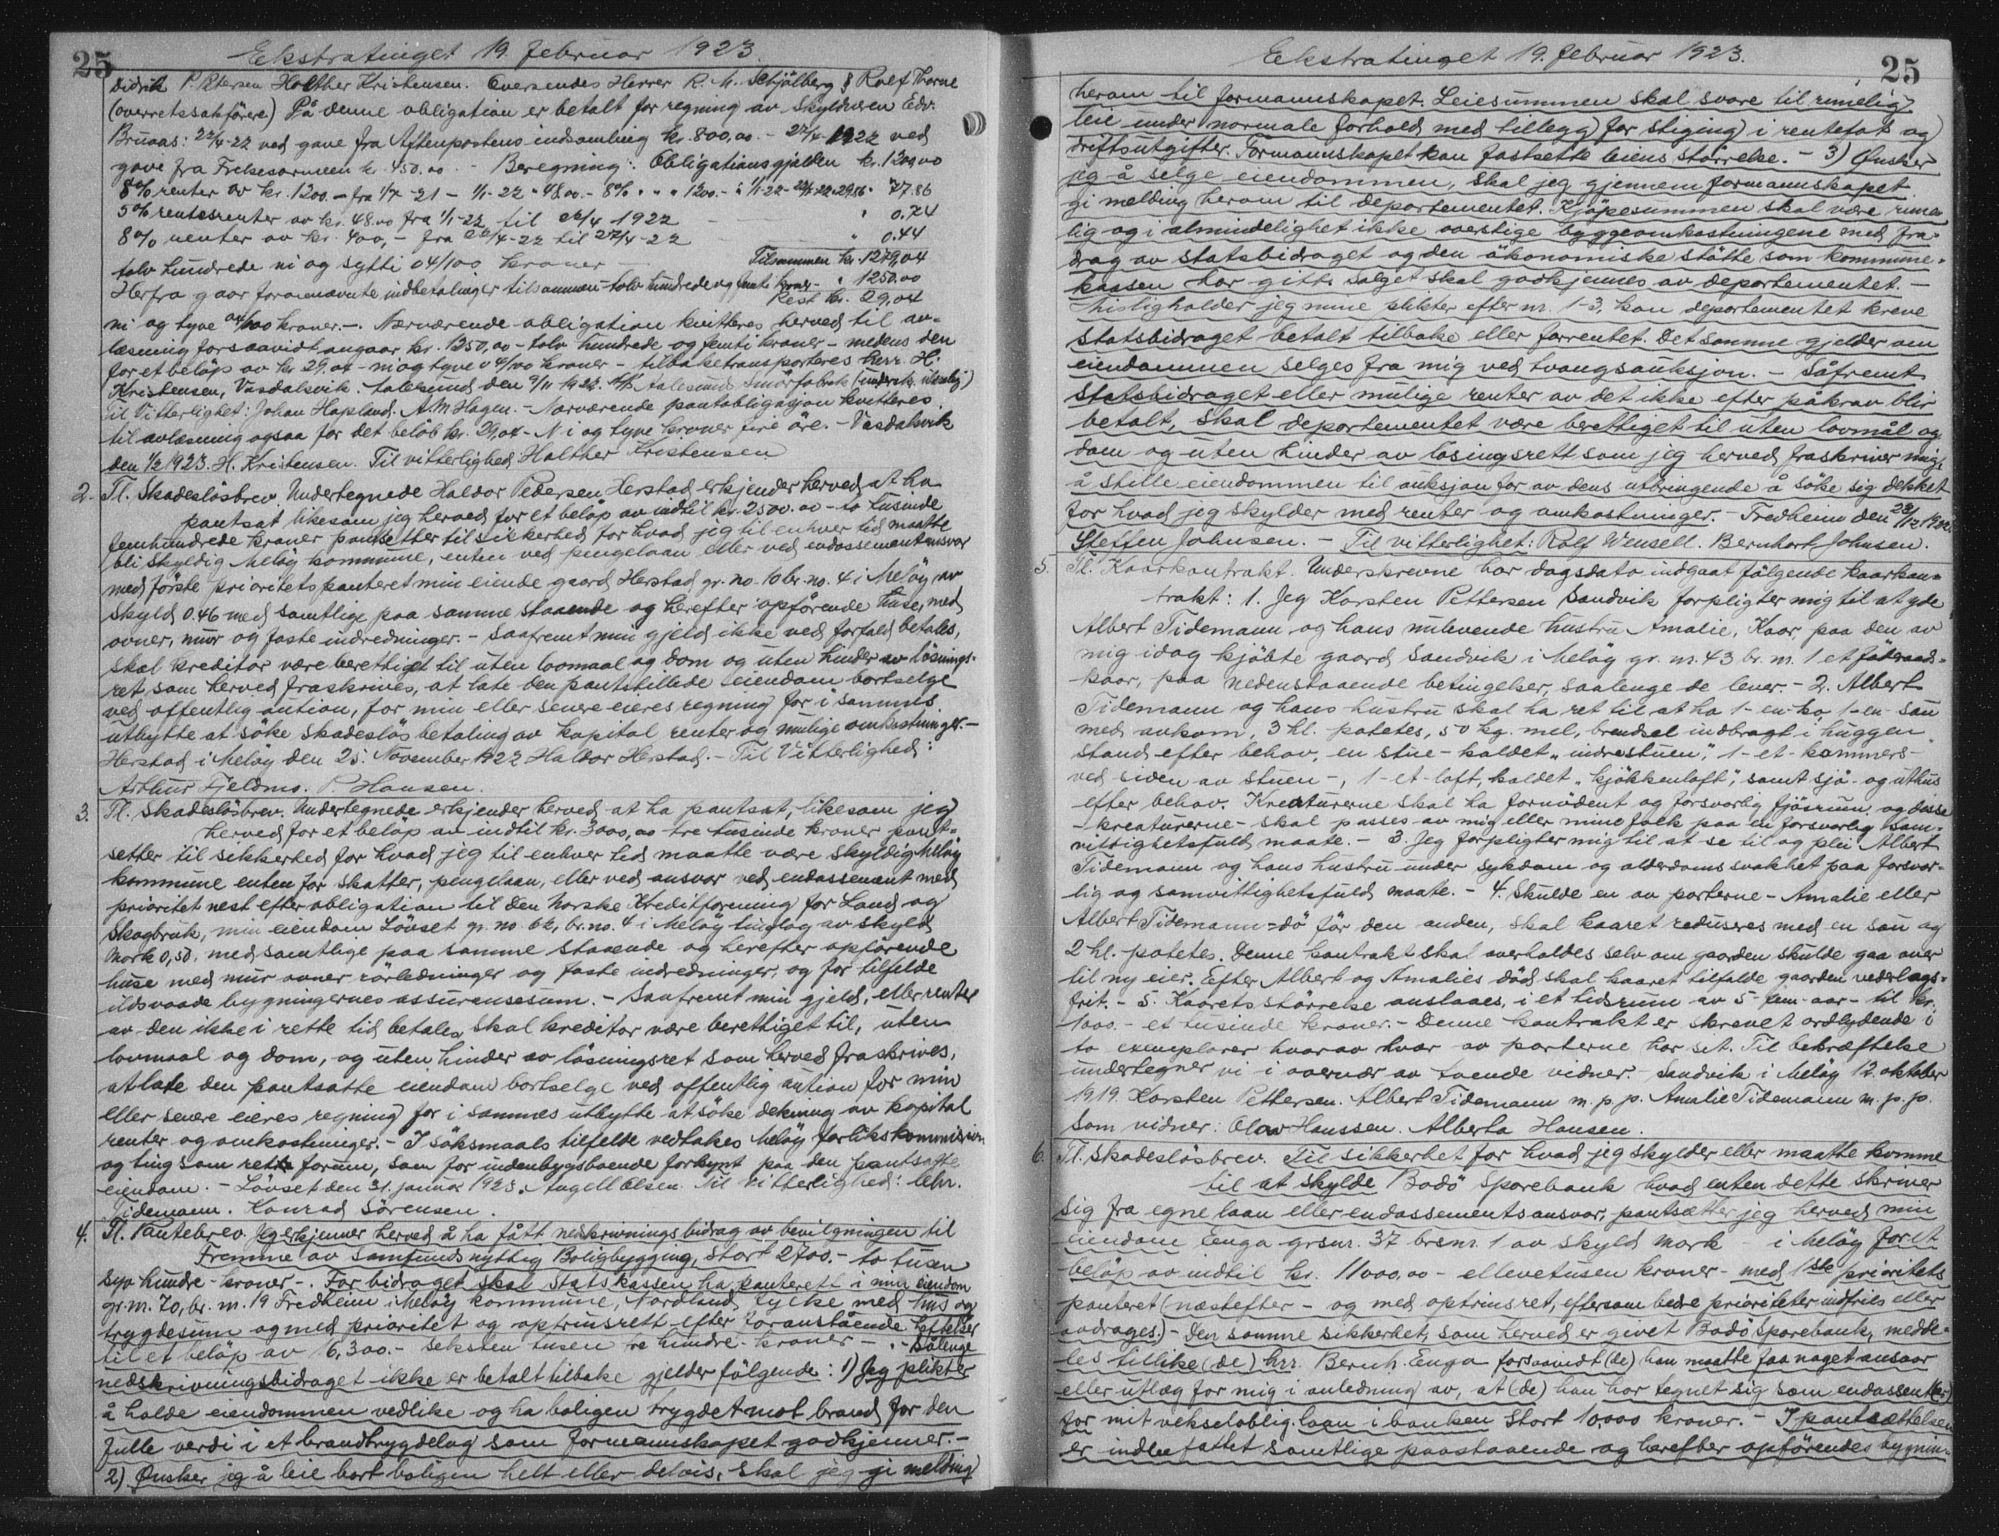 25 Ekstratinget 19. februar 1923.
Didrik P. Petersen Holther Kristensen. Oversendes Herrer R. M. Schjölberg & Rolf Thorne
(overretssakförere) På denne obligation er betalt for regning av Skyldneren Edv.
Bruaas: 22/4-22 ved gave fra Aftenpostens indsamling kr. 800,00 - 27/4 1922 ved
gave fra Frelsesarmeen kr. 450.00 - Beregning: Obligationsgjelden kr. 1200.00
8% renter av kr. 1200.- fra 1/7-21 - 1/1-22 " 48.00 - 8% " " " 1200.- " 1/1-22 - 22/4-22 " 29.86 " 77.86
5% rentesrenter av kr. 48.00 fra 1/1-22 til 22/4 1922 " 0.74
8% renter av kr. 400,- fra 22/4-22 til 27/4-22 " 0.44
tolv hundrede ni og sytti 04/100 kroner - Tilsammen kr. 1279,04
Herfra gaar forannævnte indbetalinger tilsammen tolv hundrede og femti kroner - " 1250.00
Rest kr. 29,04
ni og tyve 04/100 kroner.-. Nærværende obligation kvitteres herved til av-
læsning forsaavidt angaar kr. 1250,00 - tolv hundrede og femti kroner - medens den
for et beløp av kr 29,04 - ni og tyve 04/100 kroner - tilbaketransporteres herr. H.
Kristensen, Vasdalsvik. Aalesund den 9/11 1922. Aalesunds Smörfabrik (underskr. uleselig)
Til Vitterlighet: Johan Hapland. A. M. Hagen. - Nærværende pantobligasjon kvitteres
til avlæsning ogsaa for det beløb kr. 29,04 - Ni og tyve kroner fire öre. - Vasdalsvik
den 1/2 1923. H. Kristensen. Til vitterlighed Holther Kristensen
2. Tl. Skadeslösbrev. Undertegnede Haldor Pedersen Herstad erkjender herved at ha
pantsat, likesom jeg herved for et beløp av indtil kr. 2500.00 - to tusinde
femhundrede kroner pantsetter til sikkerhed for hvad jeg til enhver tid maatte
bli skyldig Meløy kommune, enten ved pengelaan eller ved endossementansvar
med förste prioritets panteret min eiende gaard Herstad gr. no. 10 br. no. 4 i Meløy av
skyld 0.46 med samtlige paa samme staaende og herefter opförende huse, med
ovner, mur og faste indredninger. - Saafremt min gjeld ikke ved forfald betales,
skal kreditor være berettiget til uten lovmaal og dom og uten hinder av løsnings-
ret, som herved fraskrives, at late den pantstillede eiendom bortselge
ved offentlig auktion, for min eller senere eieres regning for i sammes
utbytte at söke skadeslös betaling av kapital renter og mulige omkostninger. -
Herstad i Meløy den 25. November 1922 Haldor Herstad. - Til Vitterlighed:
Arthur Fjeldmo. P. Hansen.
3. Tl. Skadeslösbrev. Undertegnede erkjender herved at ha pantsat, likesom jeg
herved for et beløp av indtil kr. 3000,00 - tre tusinde kroner pant-
setter til sikkerhed for hvad jeg til enhver tid maatte være skyldig Meløy
kommune enten for skatter, pengelaan, eller ved ansvar ved endossement med
prioritet nest efter obligation til den Norske Kreditforening for Land og
Skogbruk, min eiendom Lövset gr. no. 64, br. no. 4 i Meløy tinglag av skyld
Mark 0,50, med samtlige paa samme staaende og herefter opförende
huse med mur ovner rörledninger og faste indredninger, og for tilfelde
ildsvaade bygningernes assurensesum. - Saafremt min gjeld, eller renter
av den ikke i rette tid betales skal kreditor være berettiget til, uten
lovmaal og dom, og uten hinder av lösningsret som herved fraskrives,
at late den pantsatte eiendom bortselge ved offentlig auktion for min
eller senere eieres regning for i sammes utbytte at söke dekning av kapital
renter og omkostninger. - I söksmaals tilfelde vedtakes Meløy forlikskommision
og ting som rette forum, som for indenbygsboende forkynt paa den pantsatte
eiendom. - Lövset den 31. januar 1923. Ingell Olsen. Til Vitterlighed: Chr.
Tidemann. Konrad Sörensen.
4. Tl. Pantebrev Jeg erkjenner herved å ha fått nedskrivningsbidrag av bevilgningen til
Fremme av Samfunds nyttig Boligbygging, stort 2700.- to tusen
syv hundre - kroner -. For bidraget skal Statskassen ha panterett i min eiendom
gr. nr. 70, br. nr. 19 Fredheim i Meløy kommune, Nordland fylke med hus og
trygdesum og med prioritet og optrinsrett efter foranstående heftelser
til et beløp av 16,300.- seksten tusen tre hundre - kroner - . - Sålenge
nedskrivningsbidraget ikke er betalt tilbake gjelder fölgende: 1) Jeg plikter
å holde eiendommen vedlike og ha boligen trygdet mot brand for den
fulle verdi i et brandtrygdelag som formannskapet godkjenner. -
2) Önsker jeg å leie bort boligen helt eller delvis, skal jeg gi melding
Ekstratinget 19. februar 1923. 25
herom til formannskapet. Leiesummen skal svare til rimelig
leie under normale forhold med tillegg for stiging i rentefot og
driftsutgifter. Formannskapet kan fastsette leiens størrelse. - 3) Önsker
jeg å selge eiendommen, skal jeg gjennem formannskapet
gi melding herom til departementet. Kjöpesummen skal være rime-
lig og i almindelighet ikke overstige byggeomkostningene med fra-
drag av statsbidraget og den ökonomiske stötte som kommune-
kassen har gitt. Salget skal godkjennes av departementet. -
Misligholder jeg mine plikter efter nr. 1-3, kan departementet kreve
statsbidraget betalt tilbake eller forrentet. Det samme gjelder om
eiendommen selges fra mig ved tvangsauksjon. - Såfremt
statsbidraget eller mulige renter av det ikke efter påkrav blir
betalt, skal departementet være berettiget til uten lovmål og
dom og uten hinder av lösningsrett som jeg herved fraskriver mig,
å stille eiendommen til auksjon for av dens utbringende å söke sig dekket
for hvad jeg skylder med renter og omkostninger. - Fredheim den 22/12 1922
Steffen Johnsen. - Til vitterlighet: Rolf Wensell. Bernhart Johnsen.
5. Tl. Kaarkontrakt. Underskrevne har dagsdato indgaat fölgende kaarkon-
trakt: 1. Jeg Karsten Pettersen Sandvik forpligter mig til at yde
Albert Tidemann og hans nulevende hustru Amalie, Kaar, paa den av
mig idag kjöbte gaard Sandvik i Meløy gr. nr. 43 br. nr. 1 et föderaads-
kaar, paa nedenstaaende betingelser, saalenge de lever. - 2. Albert
Tidemann og hans hustru skal ha ret til at ha 1-en-ko, 1-en-sau
med avkom, 3 hl. potetes, 50 kg. mel, brendsel indbragt i huggen
stand efter behov, en stue - kaldet "indrestuen", 1-et-kammers -
ved siden av stuen -, 1-et-loft, kaldet "kjökkenloft", samt sjö- og uthus
efter behov. Kreaturerne skal ha fornödent og forsvarlig fjösrum og disse
- kreaturerne - skal passes av mig eller mine folk paa en forsvarlig sam-
vittighetsfuld maate. - 3 Jeg forpligter mig til at se til og plei Albert
Tidemann og hans hustru under sykdom og alderdomssvakhet paa forsvar-
lig og samvittighetsfuld maate. - 4. Skulde en av parterne - Amalie eller
Albert Tidemann = dö för den anden, skal kaaret reduseres med en sau og
2 hl. potetes. Denne kontrakt skal overholdes selv om gaarden skulde gaa over
til ny eier. Efter Albert og Amalies död skal kaaret tilfalde gaarden vederlags-
frit. - 5. Kaarets störrelse anslaaes, i et tidsrum av 5 - fem - aar - til kr.
1000.- et tusinde kroner. - Denne kontrakt er skrevet ordlydende i
to exemplarer hvorav hver av parterne har set. Til bekræftelse
undertegner vi i overvær av tvende vidner. - Sandvik i Meløy 12. oktober
1919. Karsten Pettersen. Albert Tidemann m. p. p. Amalie Tidemann m. p. p.
Som vidner: Olav Hanssen. Alberta Hansen.
6. Tl. Skadeslösbrev. Til sikkerhet for hvad jeg skylder eller maatte komme
til at skylde Bodö Sparebank hvad enten dette skriver
sig fra egne laan eller endossementsansvar, pantsætter jeg herved min
eiendom Enga grsnr. 37 brsnr. 1 av skyld mark - i Meløy for et
beløp av indtil kr. 11000,00 - ellevetusen kroner - med 1ste prioritets
panteret (næstefter - og med optrinsret, eftersom bedre prioriteter indfries eller
avdrages). - Den samme sikkerhet, som herved er givet Bodö Sparebank, medde-
les tillike (de) hrr. Bernh. Enga forsaavidt (de) han maatte faa noget ansvar
eller utlæg for mig i anledning av, at (de) han har tegnet sig som endossent(er)
for mit vekselobliglaan i banken stort 10,000 kroner. - I pantsættelsen
er indbefattet samtlige paastaaende og herefter opförendes bygnin-